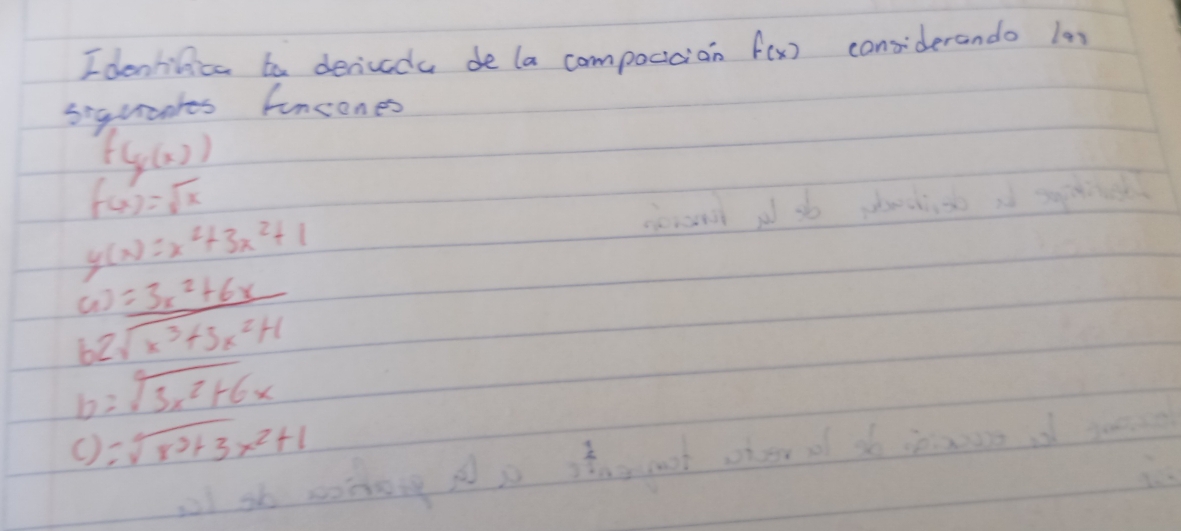 Identifica la derivada de la composición f(x) considerando las
siguientes funciones
f(y(x))
f(x)=√x
y(x)=x²+3x²+1
a)=3x²+6x
b2√x³+3x²+1
b=√3x²+6x
c)=√x³+3x²+1